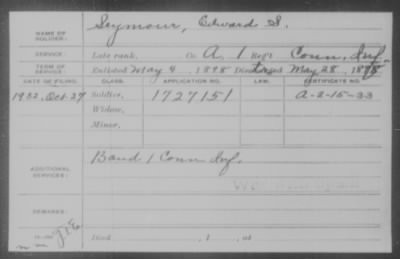 NAME OF SOLDIER: Seymour, Edward S.
SERVICE: Late rank, Co. A, 1 Reg't Conn. Inf.
TERM OF SERVICE: Enlisted May 4, 1898 Discharged May 28, 1898
DATE OF FILING. CLASS. APPLICATION NO. LAW. CERTIFICATE NO.
1932, Oct. 27 Soldier, 1727151 A-2-15-33
Widow,
Minor,
ADDITIONAL SERVICES: Band 1 Conn Inf.
REMARKS:
Died , 1 , at